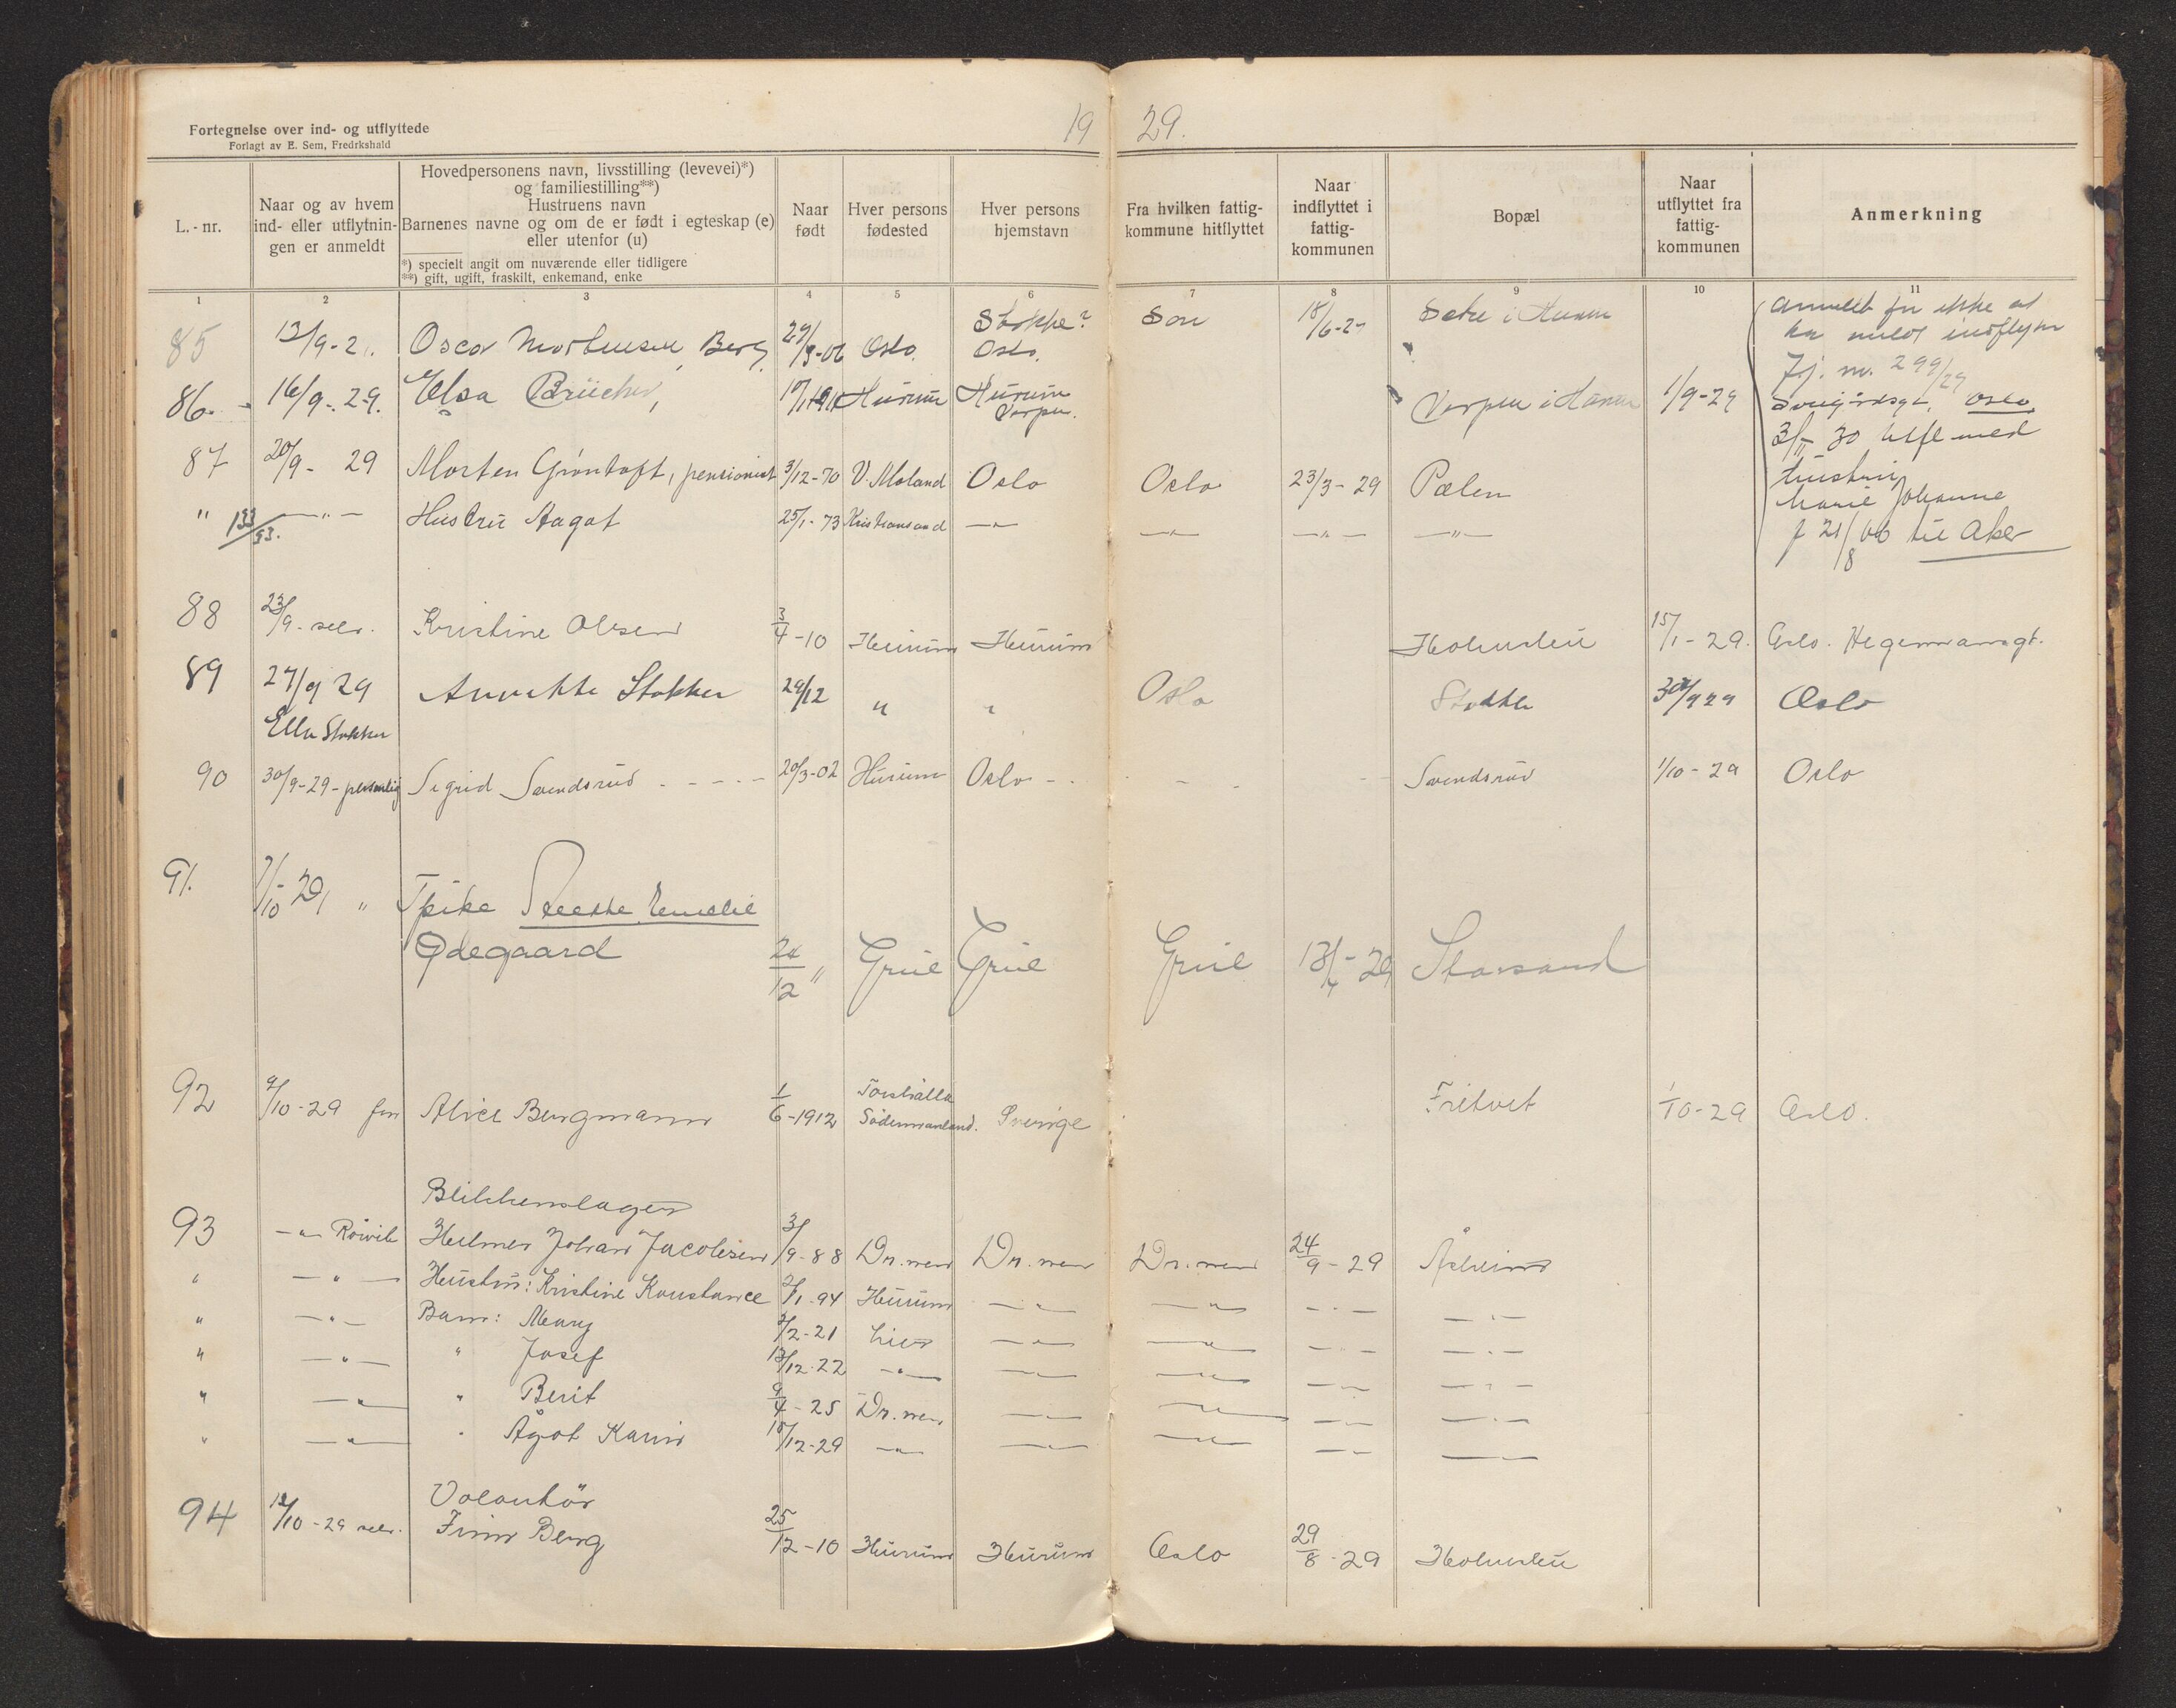 Fortegnelse over ind- og utflyttede
Forlagt av E. Sem, Fredrkshald
19 29.
L.-nr.
Naar og av hvem ind- eller utflytnin-gen er anmeldt
Hovedpersonens navn, livsstilling (levevei)*)
og familiestilling**)
Hustruens navn
Barnenes navne og om de er født i egteskap (e)
eller utenfor (u)
*) specielt angit om nuværende eller tidligere
**) gift, ugift, fraskilt, enkemand, enke
Naar født
Hver persons fødested
Hver persons hjemstavn
Fra hvilken fattig-kommune hitflyttet
Naar indflyttet i fattig-kommunen
Bopæl
Naar utflyttet fra fattig-kommunen
Anmerkning
1 2 3 4 5 6 7 8 9 10 11
85 13/9-2 Oscar Mortensen Berg 29/3-06 Oslo. Stokke? Oslo. Son 18/6-29 Sætre i Hurum
anmeldt for ikke at
ha meldt indflytn
7j. nr. 299/29
86. 16/9-29. Elsa Brücher, Hurum Hurum Verpen. Verpen i Hurum 1/9-29 Oslo
3/11-30 utfl med
hustru
Marie Johanne
f 21/8 06 til Aker
87 20/9-29 Morten Grøntoft, pensionist 3/12-70 V. Moland Oslo Oslo 23/3-29 Pælen
" 133/33. —"— Hustru Aagot 25/1-73 Kristiansand —"— —"— —"— —"—
88 23/9- selv. Kristine Olsen 3/4-10 Hurum Hurum Holmsbu 15/1-29. Oslo. Hegermansgt.
89 27/9 29 Annette Stokker 29/12 " " Oslo Stokker 30/9 29 Oslo
Ella Stokker
90 30/9-29-personlig Sigrid Svendsrud - - - - 20/3-02 Hurum Oslo - - Svendsrud 1/10-29 Oslo
91. 7/10-29 " Pike Emelie
Ødegaard 24/12 " Grue Grue Grue 13/4-29 Storsand
92 9/10-29 Alice Bergmann 1/6-1912 Torshälla Södermanland. Sverige Fritvet 1/10-29 Oslo.
Blikkenslager
93 —"— Røivik Helmer Johan Jacobsen 3/9-88 Dr.men Dr.men Dr.men 24/9-29 Åsheim
" —"— Hustru: Kristine Konstance 2/1-94 Hurum —"— —"— —"— —"—
" —"— Barn: Mary 2/2-21 Lier —"— —"— —"— —"—
" —"— " Josef 13/12-22 —"— —"— —"— —"— —"—
" —"— " Berit 9/4-25 Dr.men —"— —"— —"— —"—
" —"— " Ågot Karin 15/12-29 —"— —"— —"— —"— —"—
Volontør
94 12/10-29 selv. Finn Berg 25/12-10 Hurum Hurum Oslo 29/8-29 Holmsbu